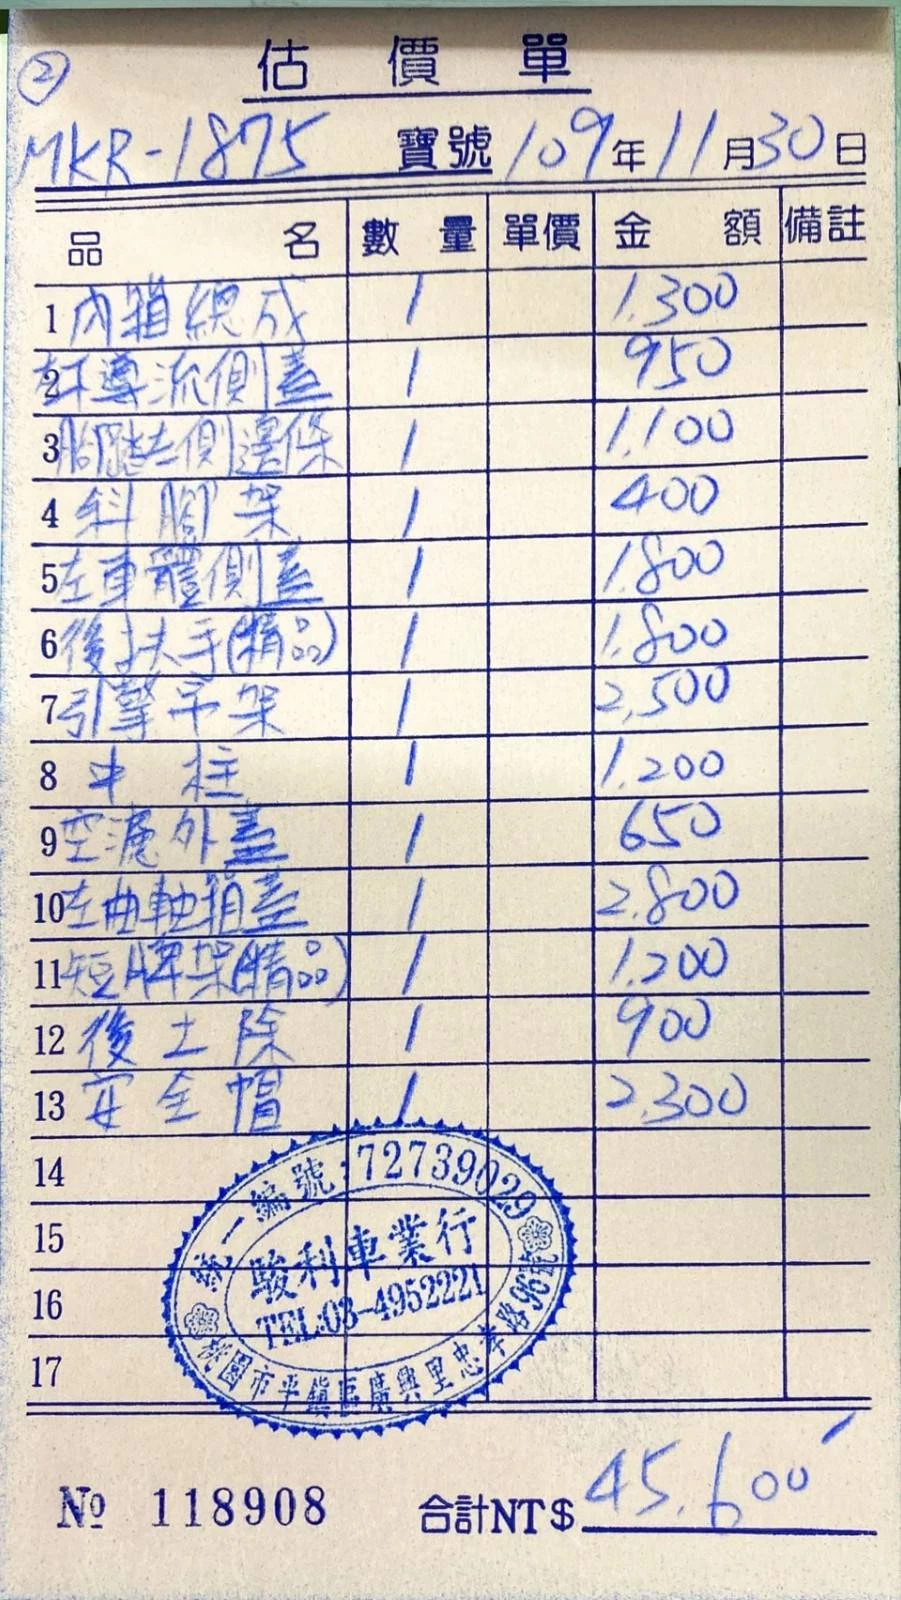 ②
估價單
MKR-1875 寶號 109年11月30日
品名 數量 單價 金額 備註
1 內箱總成 1 1.300
2 右導流側蓋 1 950
3 腳踏左側邊條 1 1.100
4 斜腳架 1 400
5 左車體側蓋 1 1.800
6 後扶手(精品) 1 1.800
7 引擎吊架 1 2.500
8 中柱 1 1.200
9 空濾外蓋 1 650
10 左曲軸箱蓋 1 2.800
11 短牌架(精品) 1 1.200
12 後土除 1 900
13 安全帽 1 2.300
14
15
16
17
統一編號:72739029
駿利車業行
TEL:03-4952221
桃園市平鎮區廣興里忠孝路96號
№ 118908 合計NT$ 45.600